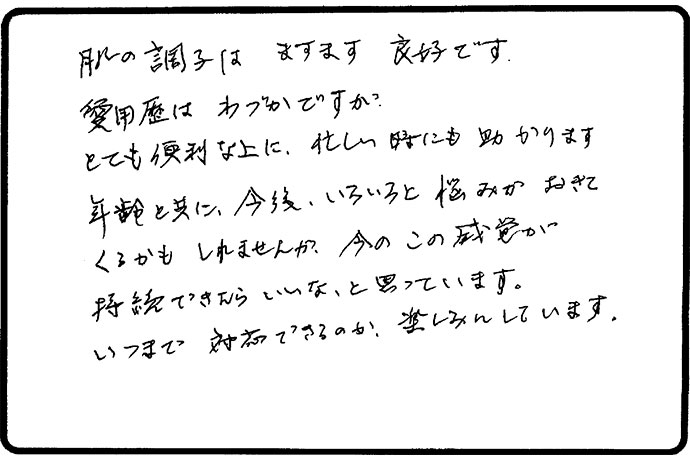 肌の調子は ますます 良好です.
愛用歴は わづかですが、
とても便利な上に、忙しい時にも 助かります
年齢と共に、今後、いろいろと 悩みが おきて
くるかも しれませんが、今の この 感覚が
持続できたら いいな、と思っています。
いつまで 対応できるのか、楽しみにしています.